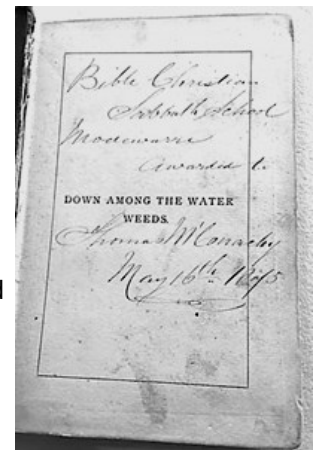 Bible Christian
Sabbath School
Modewarre
Awarded to
DOWN AMONG THE WATER
WEEDS.
Thomas M'Conachy
May 16th